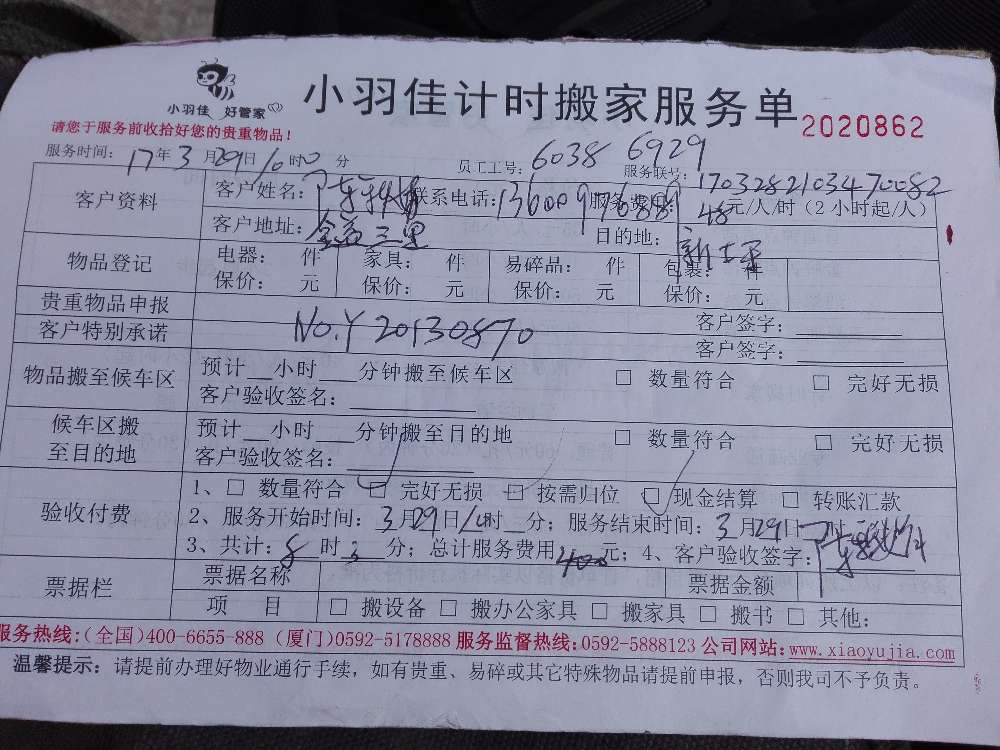 小羽佳 好管家
小羽佳计时搬家服务单
2020862
请您于服务前收拾好您的贵重物品！
服务时间：17年3月29日10时0分 员工工号：6038 6929 服务联号：170328210347 0082
客户资料 客户姓名：陈 联系电话： 服务费用：48元/人/时（2小时起/人）
客户地址：金益三里 目的地：新
物品登记 电器： 件 家具： 件 易碎品： 件 包装： 件
保价： 元 保价： 元 保价： 元 保价： 元
贵重物品申报 客户签字：
No.Y20130870
客户特别承诺 客户签字：
物品搬至候车区 预计__小时___分钟搬至候车区 □ 数量符合 □ 完好无损
客户验收签名：
候车区搬至目的地 预计__小时___分钟搬至目的地 □ 数量符合 □ 完好无损
客户验收签名：
验收付费 1、□ 数量符合 □ 完好无损 □ 按需归位 □ 现金结算 □ 转账汇款
2、服务开始时间：3月29日10时 分；服务结束时间：3月29日 时 分
3、共计：8时 分；总计服务费用400元；4、客户验收签字：陈
票据栏 票据名称 票据金额
项 目 □ 搬设备 □ 搬办公家具 □ 搬家具 □ 搬书 □ 其他：
服务热线：(全国)400-6655-888 (厦门)0592-5178888 服务监督热线：0592-5888123 公司网站：www.xiaoyujia.com
温馨提示：请提前办理好物业通行手续，如有贵重、易碎或其它特殊物品请提前申报，否则我司不予负责。